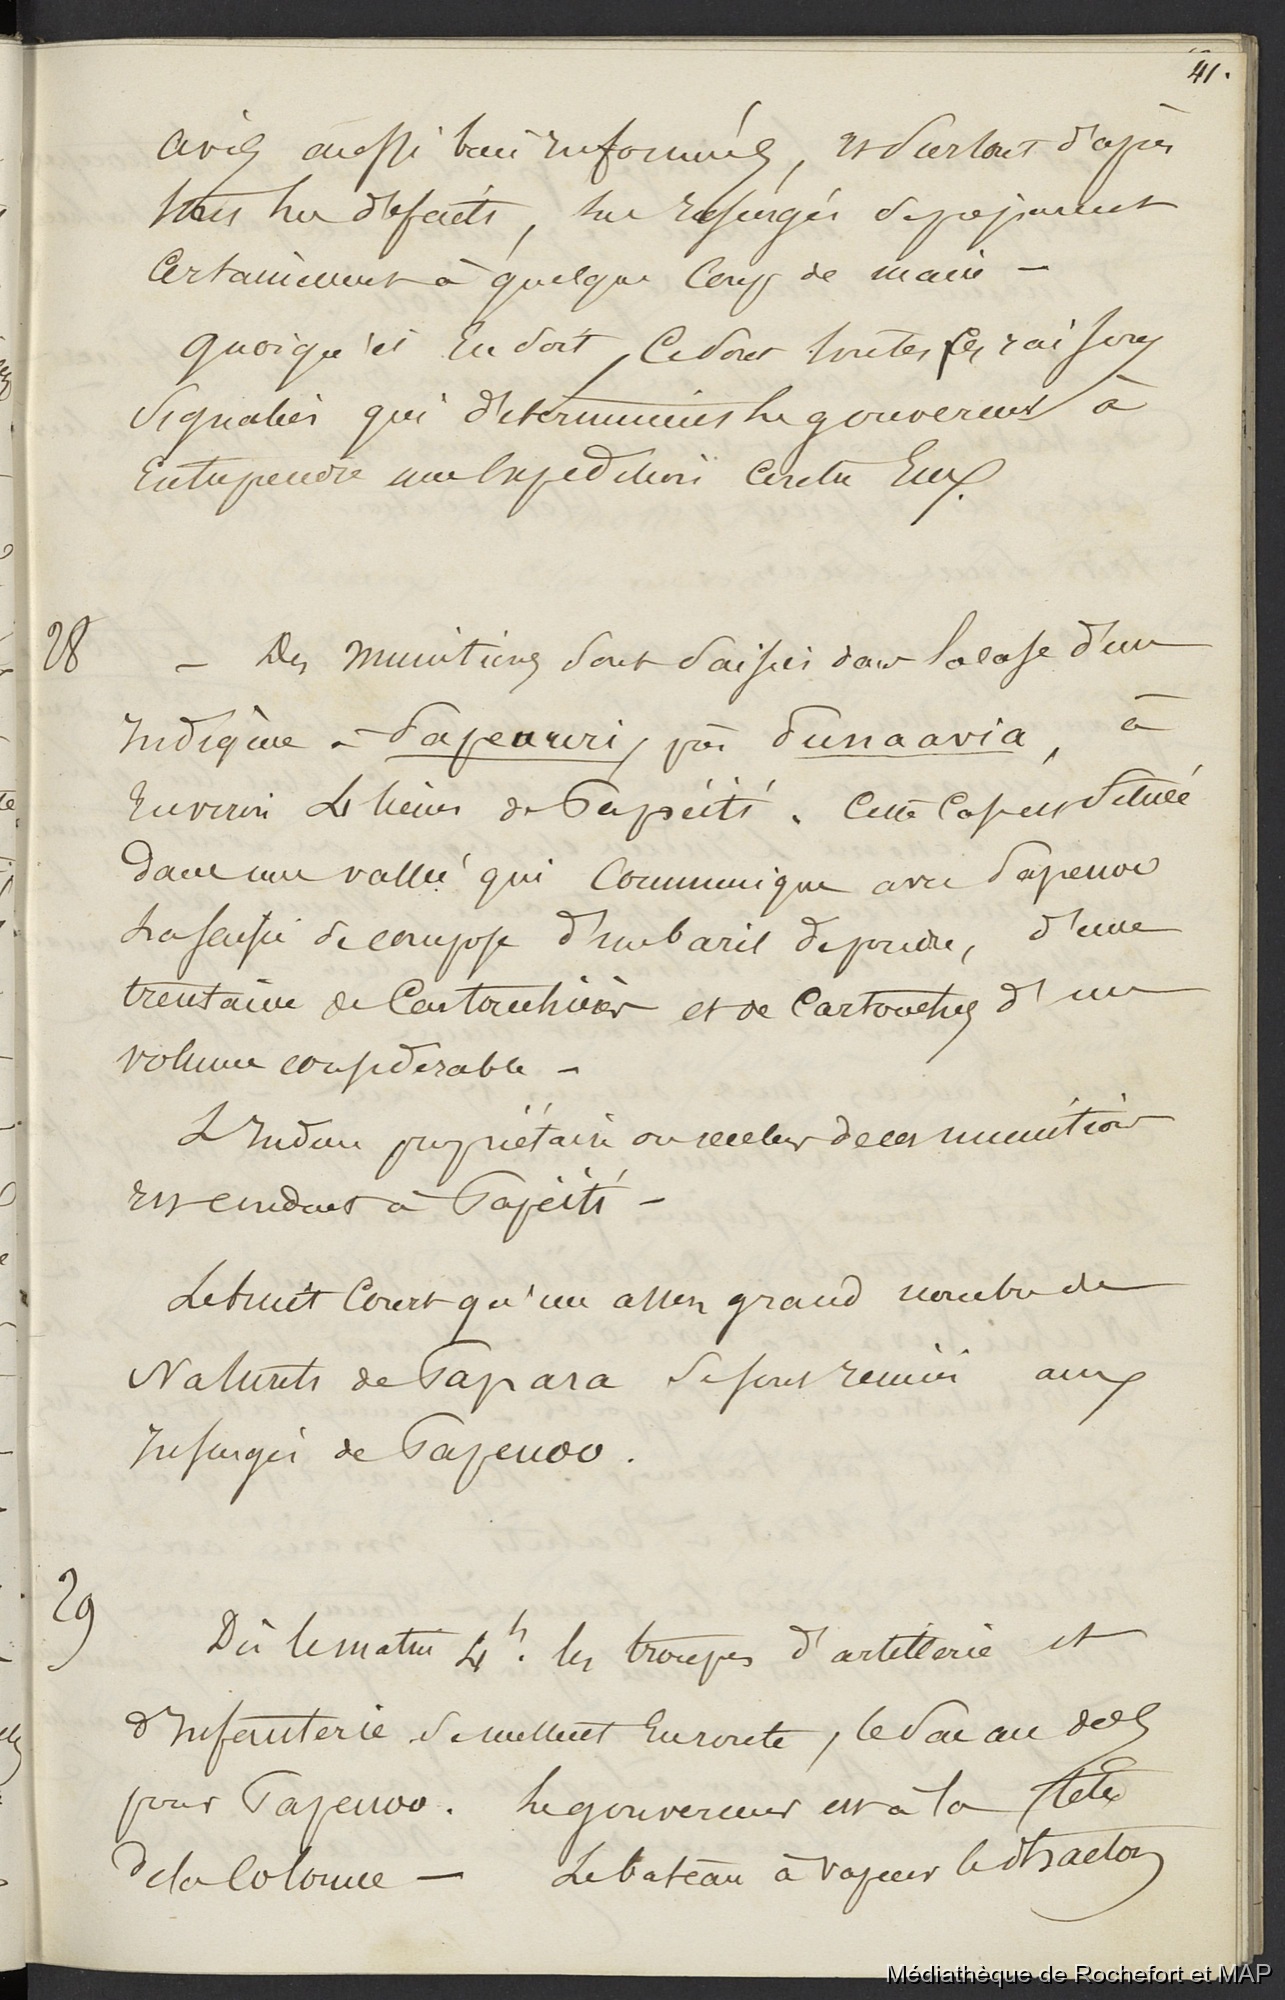 41.
avis aussi bien informés, et surtout d'après
tous les défaits, les insurgés se préparent
certainement à quelque coup de main -
quoiqu'il en soit, ce sont toutes ces raisons
signalées qui déterminent le gouverneur à
entreprendre une expédition contre eux.
28 - Des munitions sont saisies dans la case d'un
indigène à Papeuriri, près Punaavia, à
environ 4 lieues de Papéiti. Cette case est située
dans une vallée qui communique avec Papenoo
La saisie se compose d'un baril de poudre, d'une
trentaine de cartouchières et de cartouches d'un
volume considérable -
L'Indien propriétaire ou receleur de ces munitions
est conduit à Papéiti -
Le bruit court qu'un assez grand nombre de
Naturels de Papara se sont réunis aux
insurgés de Papenoo.
29 Dès le matin 4h. les troupes d'artillerie et
d'infanterie se mettent en route, le sac au dos
pour Papenoo. Le gouverneur est à la tête
de la colonne - Le bateau à vapeur le
Médiathèque de Rochefort et MAP